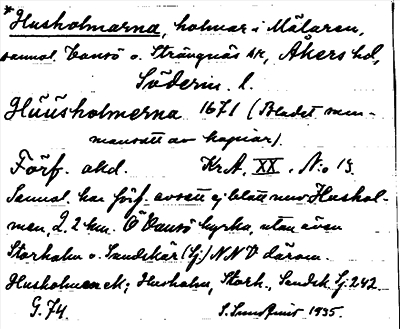 *Husholmarna, holmar i Mälaren,
sannol. Vansö o. Strängnäs sk, Åkers hd,
Söderm. l.
Hüüsholmerna 1671 (Bladet
av kopior).
Förf. okd. Kr.A. XX. N:o 15.
Sannol. har förf. avsett ej blott nuv. Hushol-
men 2.2 km. Ö Vansö kyrka, utan även
Storholm o. Sandskär (Gj) NNV därom.
Husholmen ek; Husholm, Stork., Sandsk Gj 242.
G. 74. 1935.